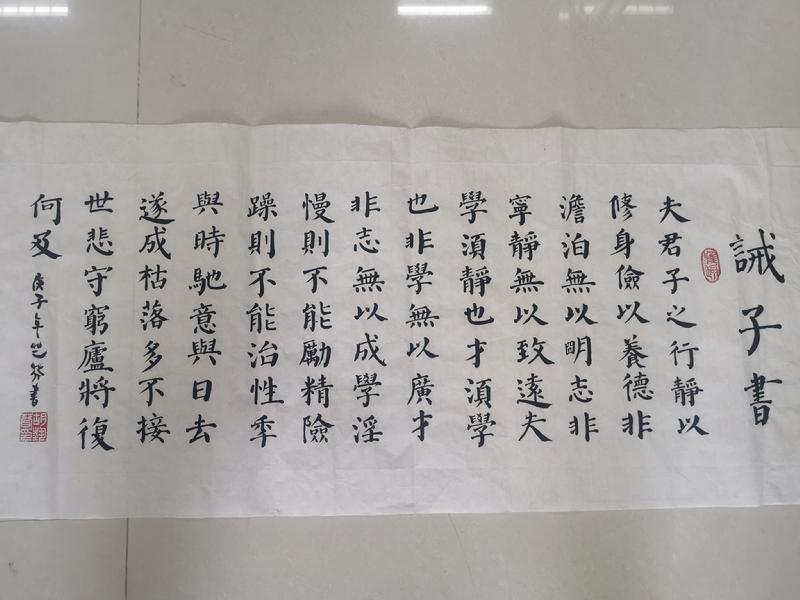 誡子書
夫君子之行靜以
修身儉以養德非
澹泊無以明志非
寧靜無以致遠夫
學須靜也才須學
也非學無以廣才
非志無以成學淫
慢則不能勵精險
躁則不能治性秊
與時馳意與日去
遂成枯落多不接
世悲守窮廬將復
何及
庚子年 書